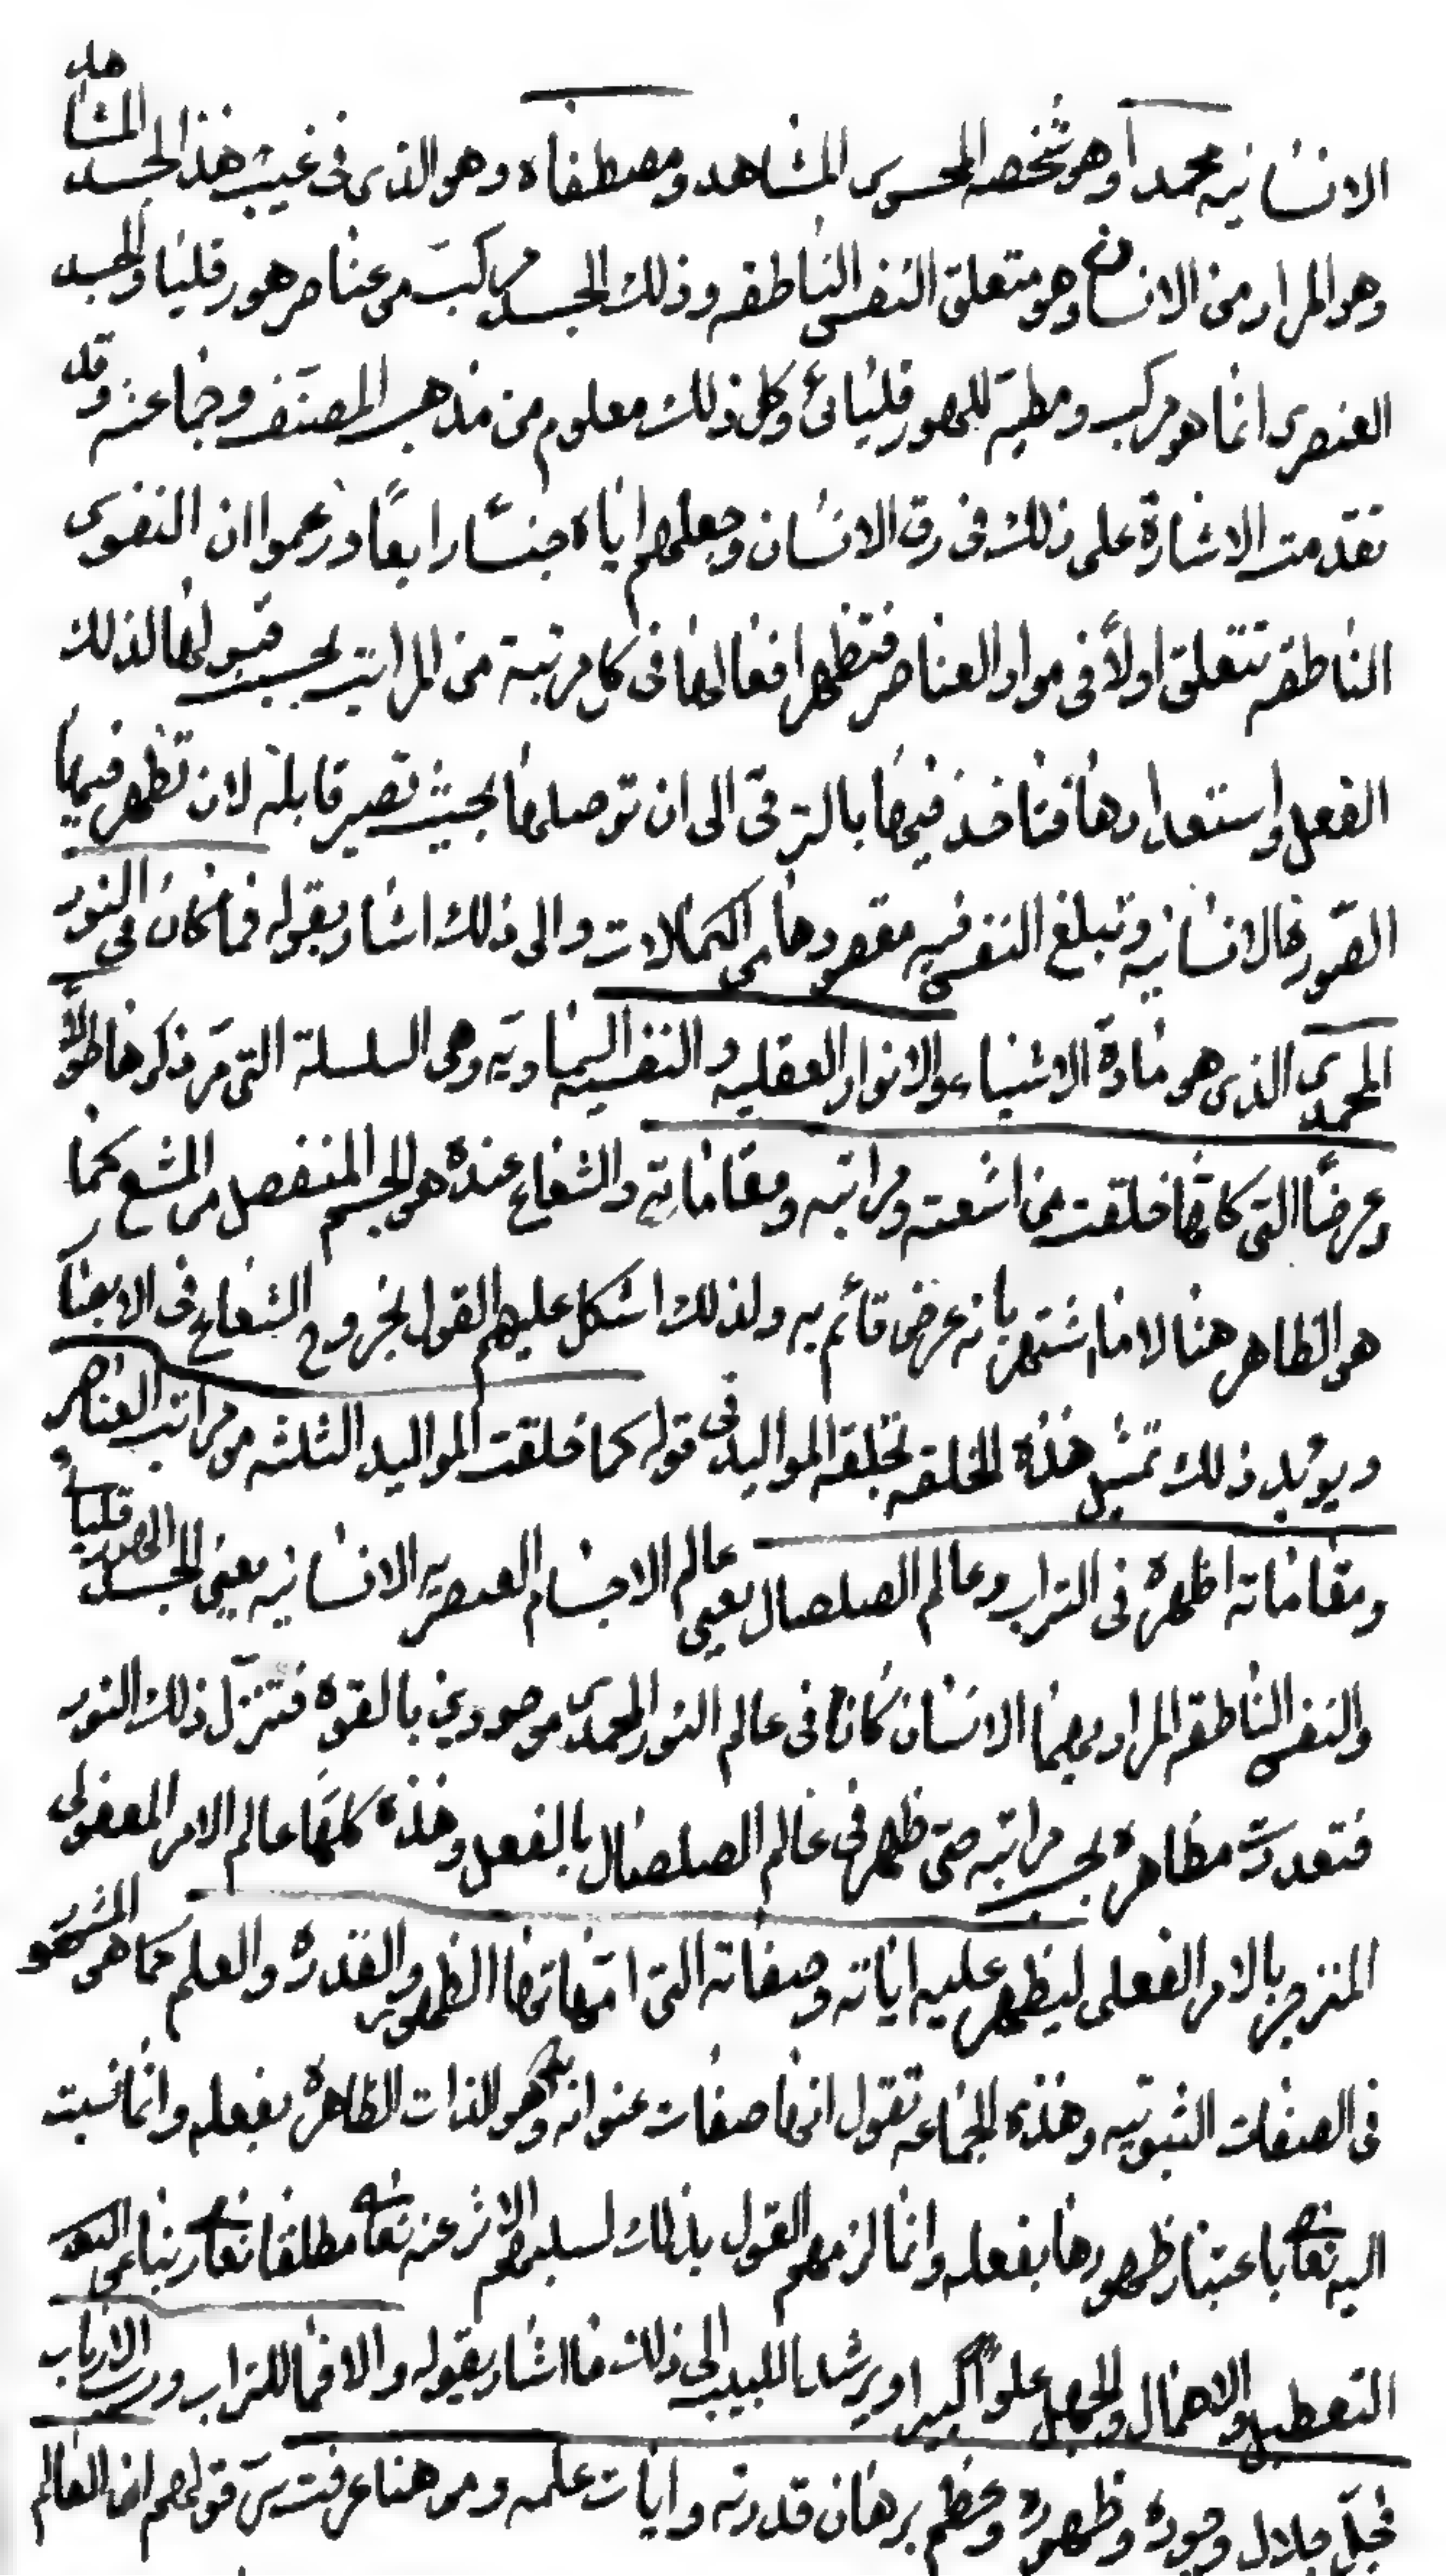 الانسانيه محمدا وهو شخصه المحسوس المشاهد ومصطفاه وهو الذي في غيب هذا الجسد المشاهد
وهو المراد من الانسان وهو متعلق النفس الناطقه وذلك الجسد مركب من عناصر هورقليا والجسد
العنصري انما هو مركب ومطية للهورقليائي وكل ذلك معلوم من مذهب المصنف وجماعته وقد
تقدمت الاشارة على ذلك في رق الانسان وجعلهم اياه جنسا رابعا وزعموا ان النفوس
الناطقه تتعلق اولا في مواد العناصر فتظهر افعالها في كل مرتبة من المراتب بحسب قبولها لذلك
الفعل واستعدادها فتاخذ فيها بالترقي الى ان توصلها بحيث تصير قابلة لان تظهر فيها
الصورة الانسانيه وتبلغ النفس فيه مقصودها من الكمالات والى ذلك اشار بقوله فما كان في النور
المحمدي الذي هو مادة الاشياء والانوار العقليه والنفسيه السماويه وهي السلسلة التي مر ذكرها طولا
وعرضا التي كانها خلقت من اشعته ومراتبه ومقاماته والشعاع عنده هو الجسم المنفصل من المشع كما
هو الظاهر هنا لا ما اشتهر بانه عرض قائم به ولذلك اشكل عليهم القول بخروج الشعاع في الابصار
ويويد ذلك تمثيل هذه الخلقه بخلقه المواليد في قوله كما خلقت المواليد الثلثه من مراتب العناصر
ومقاماته اظهره في التراب وعالم الصلصال يعني عالم الاجسام العنصريه الانسانيه يعني الجسد الهورقليائي
والنفس الناطقه المراد بهما الانسان كانا في عالم النور المحمدي موجودين بالقوه فتنزل ذلك النور
فتعددت مظاهره بحسب مراتبه حتى ظهر في عالم الصلصال بالفعل وهذه كلها عالم الامر المفعولي
المنزجر بالامر الفعلي ليظهر عليه اياته وصفاته التي امهاتها الظهور والقدره والعلم كما هو المشهور
في الصفات الثبوتيه وهذه الجماعه تقول انها صفات عنوانه وهو الذات الظاهرة بفعله وانما نسبت
اليه تعالى باعتبار ظهورها بفعله وانما لزمهم القول بذلك لسلبهم الاثر عنه تعالى مطلقا تعالى ربنا عن
التعطيل والاهمال والجهل علوا كبيرا ويرشد اللبيب الى ذلك ما اشار بقوله والا فما للتراب ورب الارباب
فجل جلال وجوده وظهوره وعظم برهان قدرته وايات علمه ومن هنا عرفت سر قولهم ان العالم